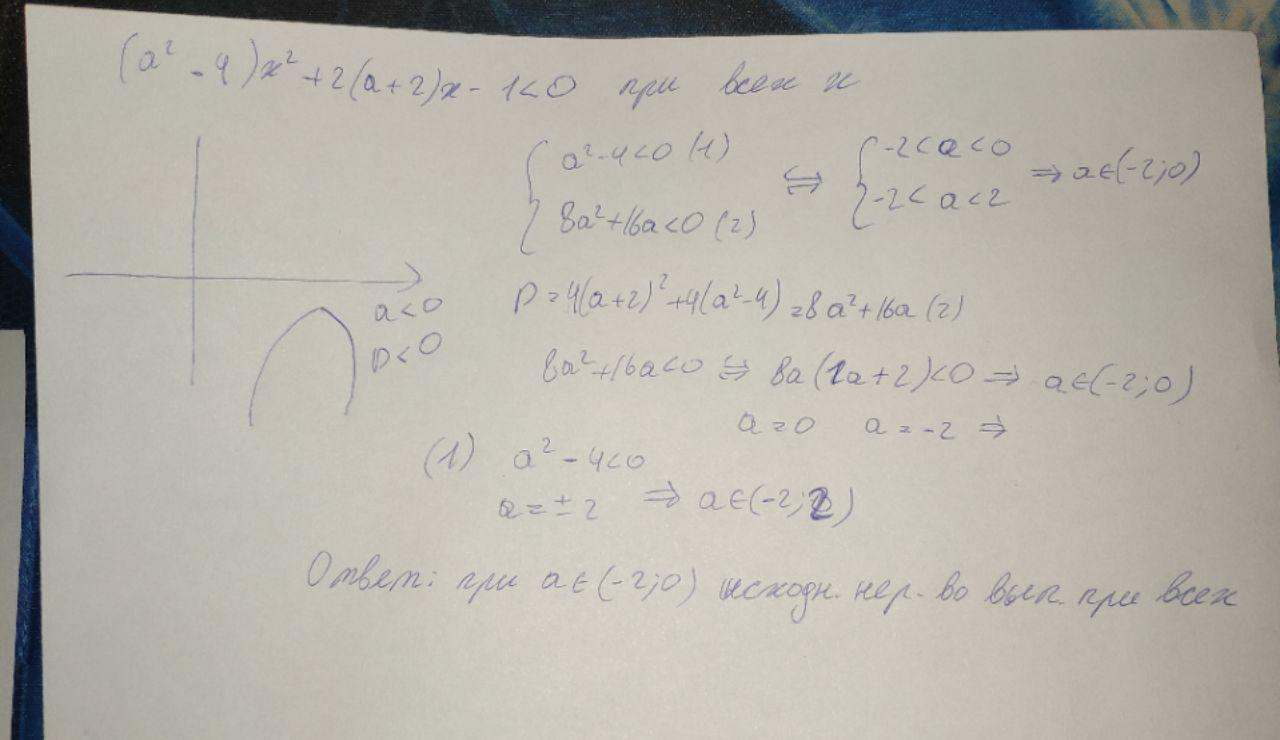 (a² - 4)x² + 2(a+2)x - 1 < 0 при всех x
{ a² - 4 < 0 (1) ⇔ { -2 < a < 0 ⇒ a ∈ (-2; 0)
8a² + 16a < 0 (2) -2 < a < 2
a < 0
D < 0
D = 4(a+2)² + 4(a² - 4) = 8a² + 16a (2)
8a² + 16a < 0 ⇔ 8a(1a + 2) < 0 ⇒ a ∈ (-2; 0)
a = 0 a = -2 ⇒
(1) a² - 4 < 0
a = ± 2 ⇒ a ∈ (-2; 2)
Ответ: при a ∈ (-2; 0) исходн. нер-во вып. при всех